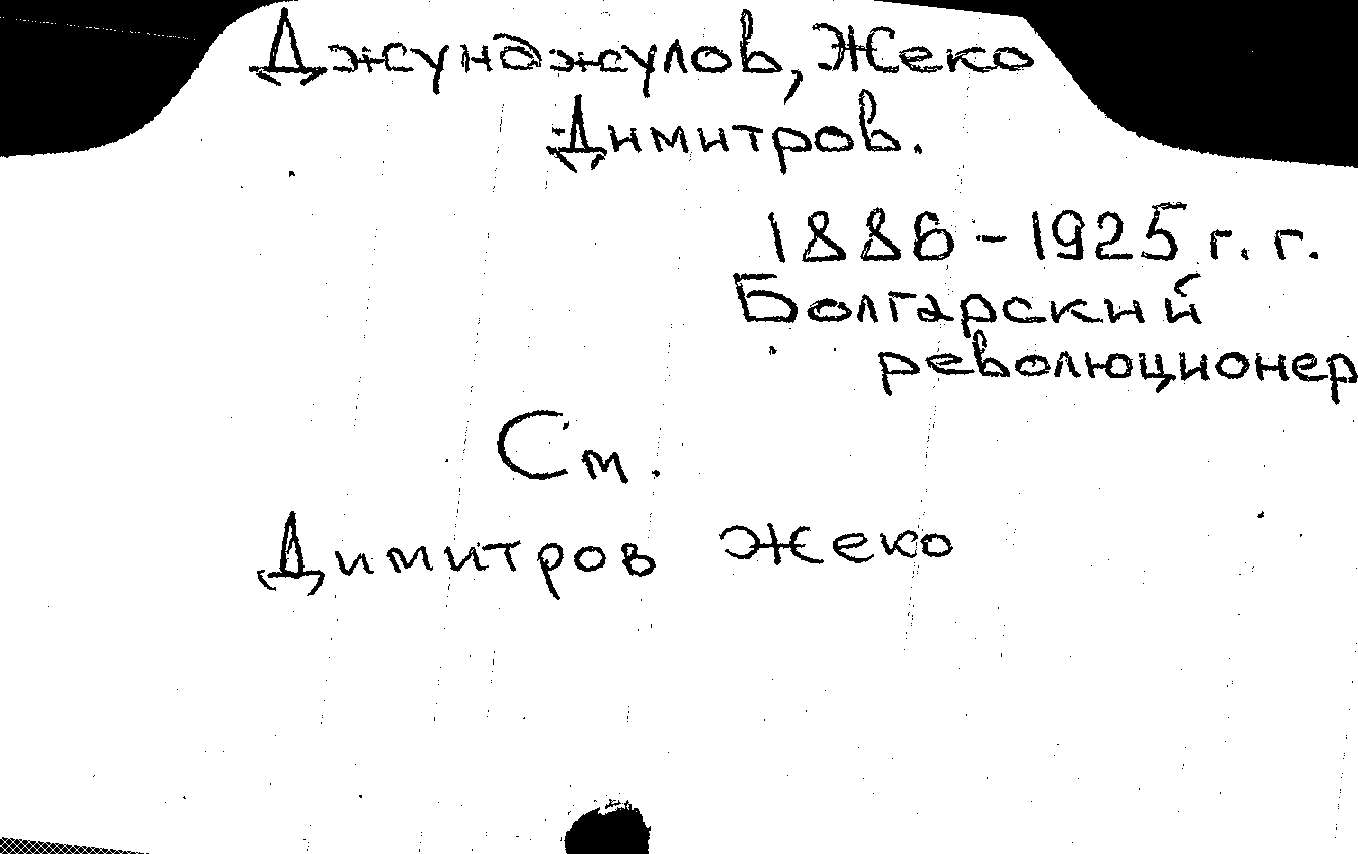 Джунджулов, Жеко
Димитров.
1886-1925 г. г.
Болгарский
революционер
См.
Димитров Жеко